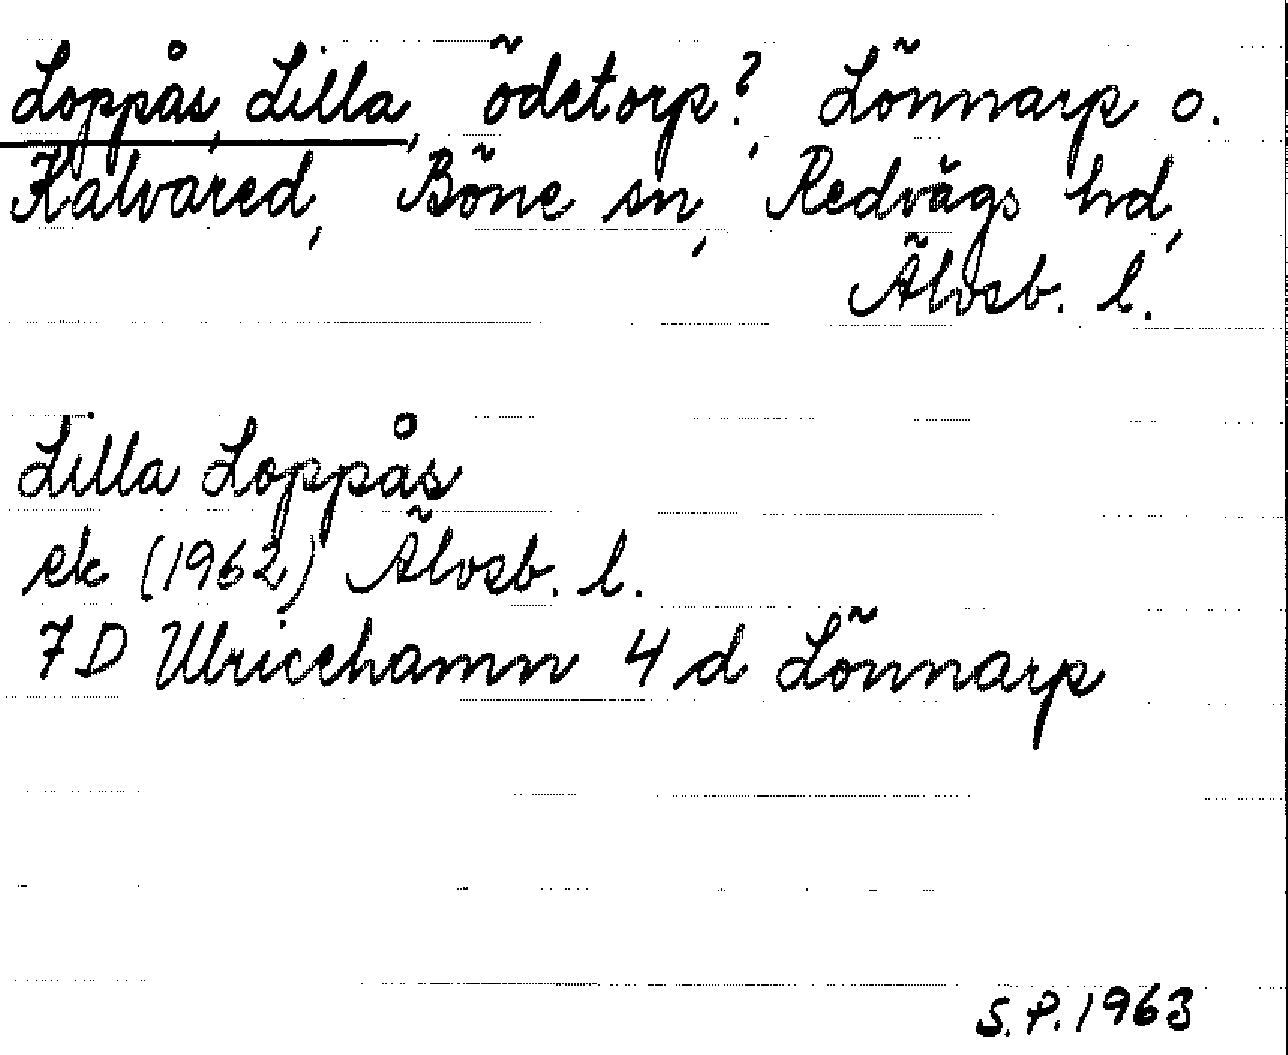 Loppås, Lilla, ödetorp?, Lönnarp o.
Kalvared, Böne sn, Redvägs hd,
Älvsb. l.
Lilla Loppås
ek (1962) Älvsb. l.
7D Ulricehamn 4 d Lönnarp
S.P. 1963